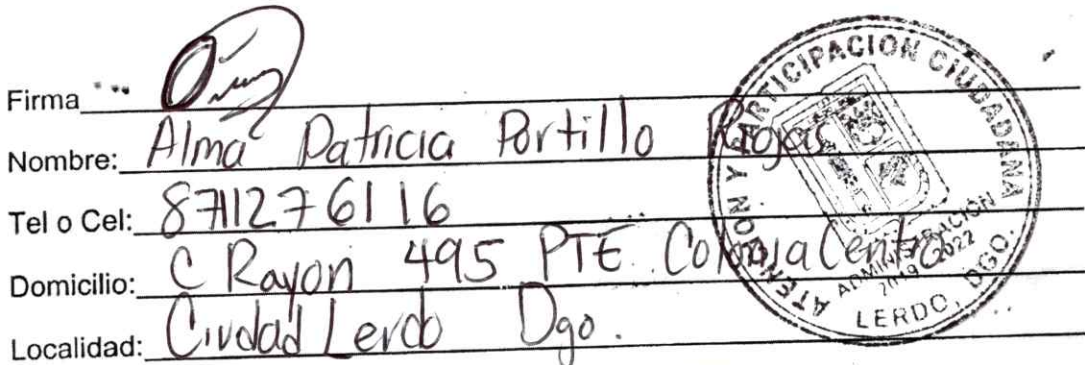 Firma
Nombre: Alma Patricia Portillo Rojas
Tel o Cel: 8711276116
Domicilio: C Rayon 495 PTE. Colonia Centro
Localidad: Ciudad Lerdo Dgo.
ATENCION Y PARTICIPACION CIUDADANA
ADMINISTRACIÓN
2019 2022
LERDO, DGO.